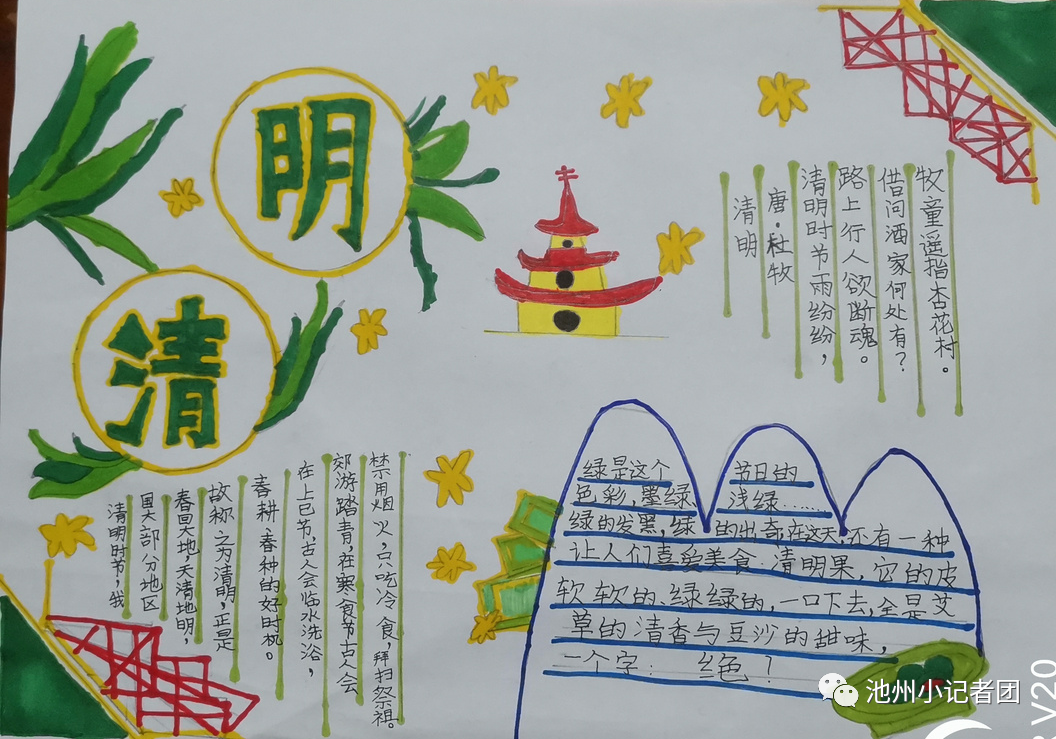 清
明
清明
唐·杜牧
清明时节雨纷纷，
路上行人欲断魂。
借问酒家何处有？
牧童遥指杏花村。
清明时节，我
国大部分地区
春回大地，天清地明，
故称之为清明，正是
春耕春种的好时机。
在上巳节，古人会临水洗浴，
郊游踏青，在寒食节古人会
禁用烟火，只吃冷食，拜扫祭祖。
绿是这个 节日的
色彩，墨绿 浅绿……
绿的发黑，绿的出奇，在这天，还有一种
让人们喜爱美食：清明果，它的皮
软软的，绿绿的，一口下去，全是艾
草的清香与豆沙的甜味，
一个字： 绝！
池州小记者团
V20